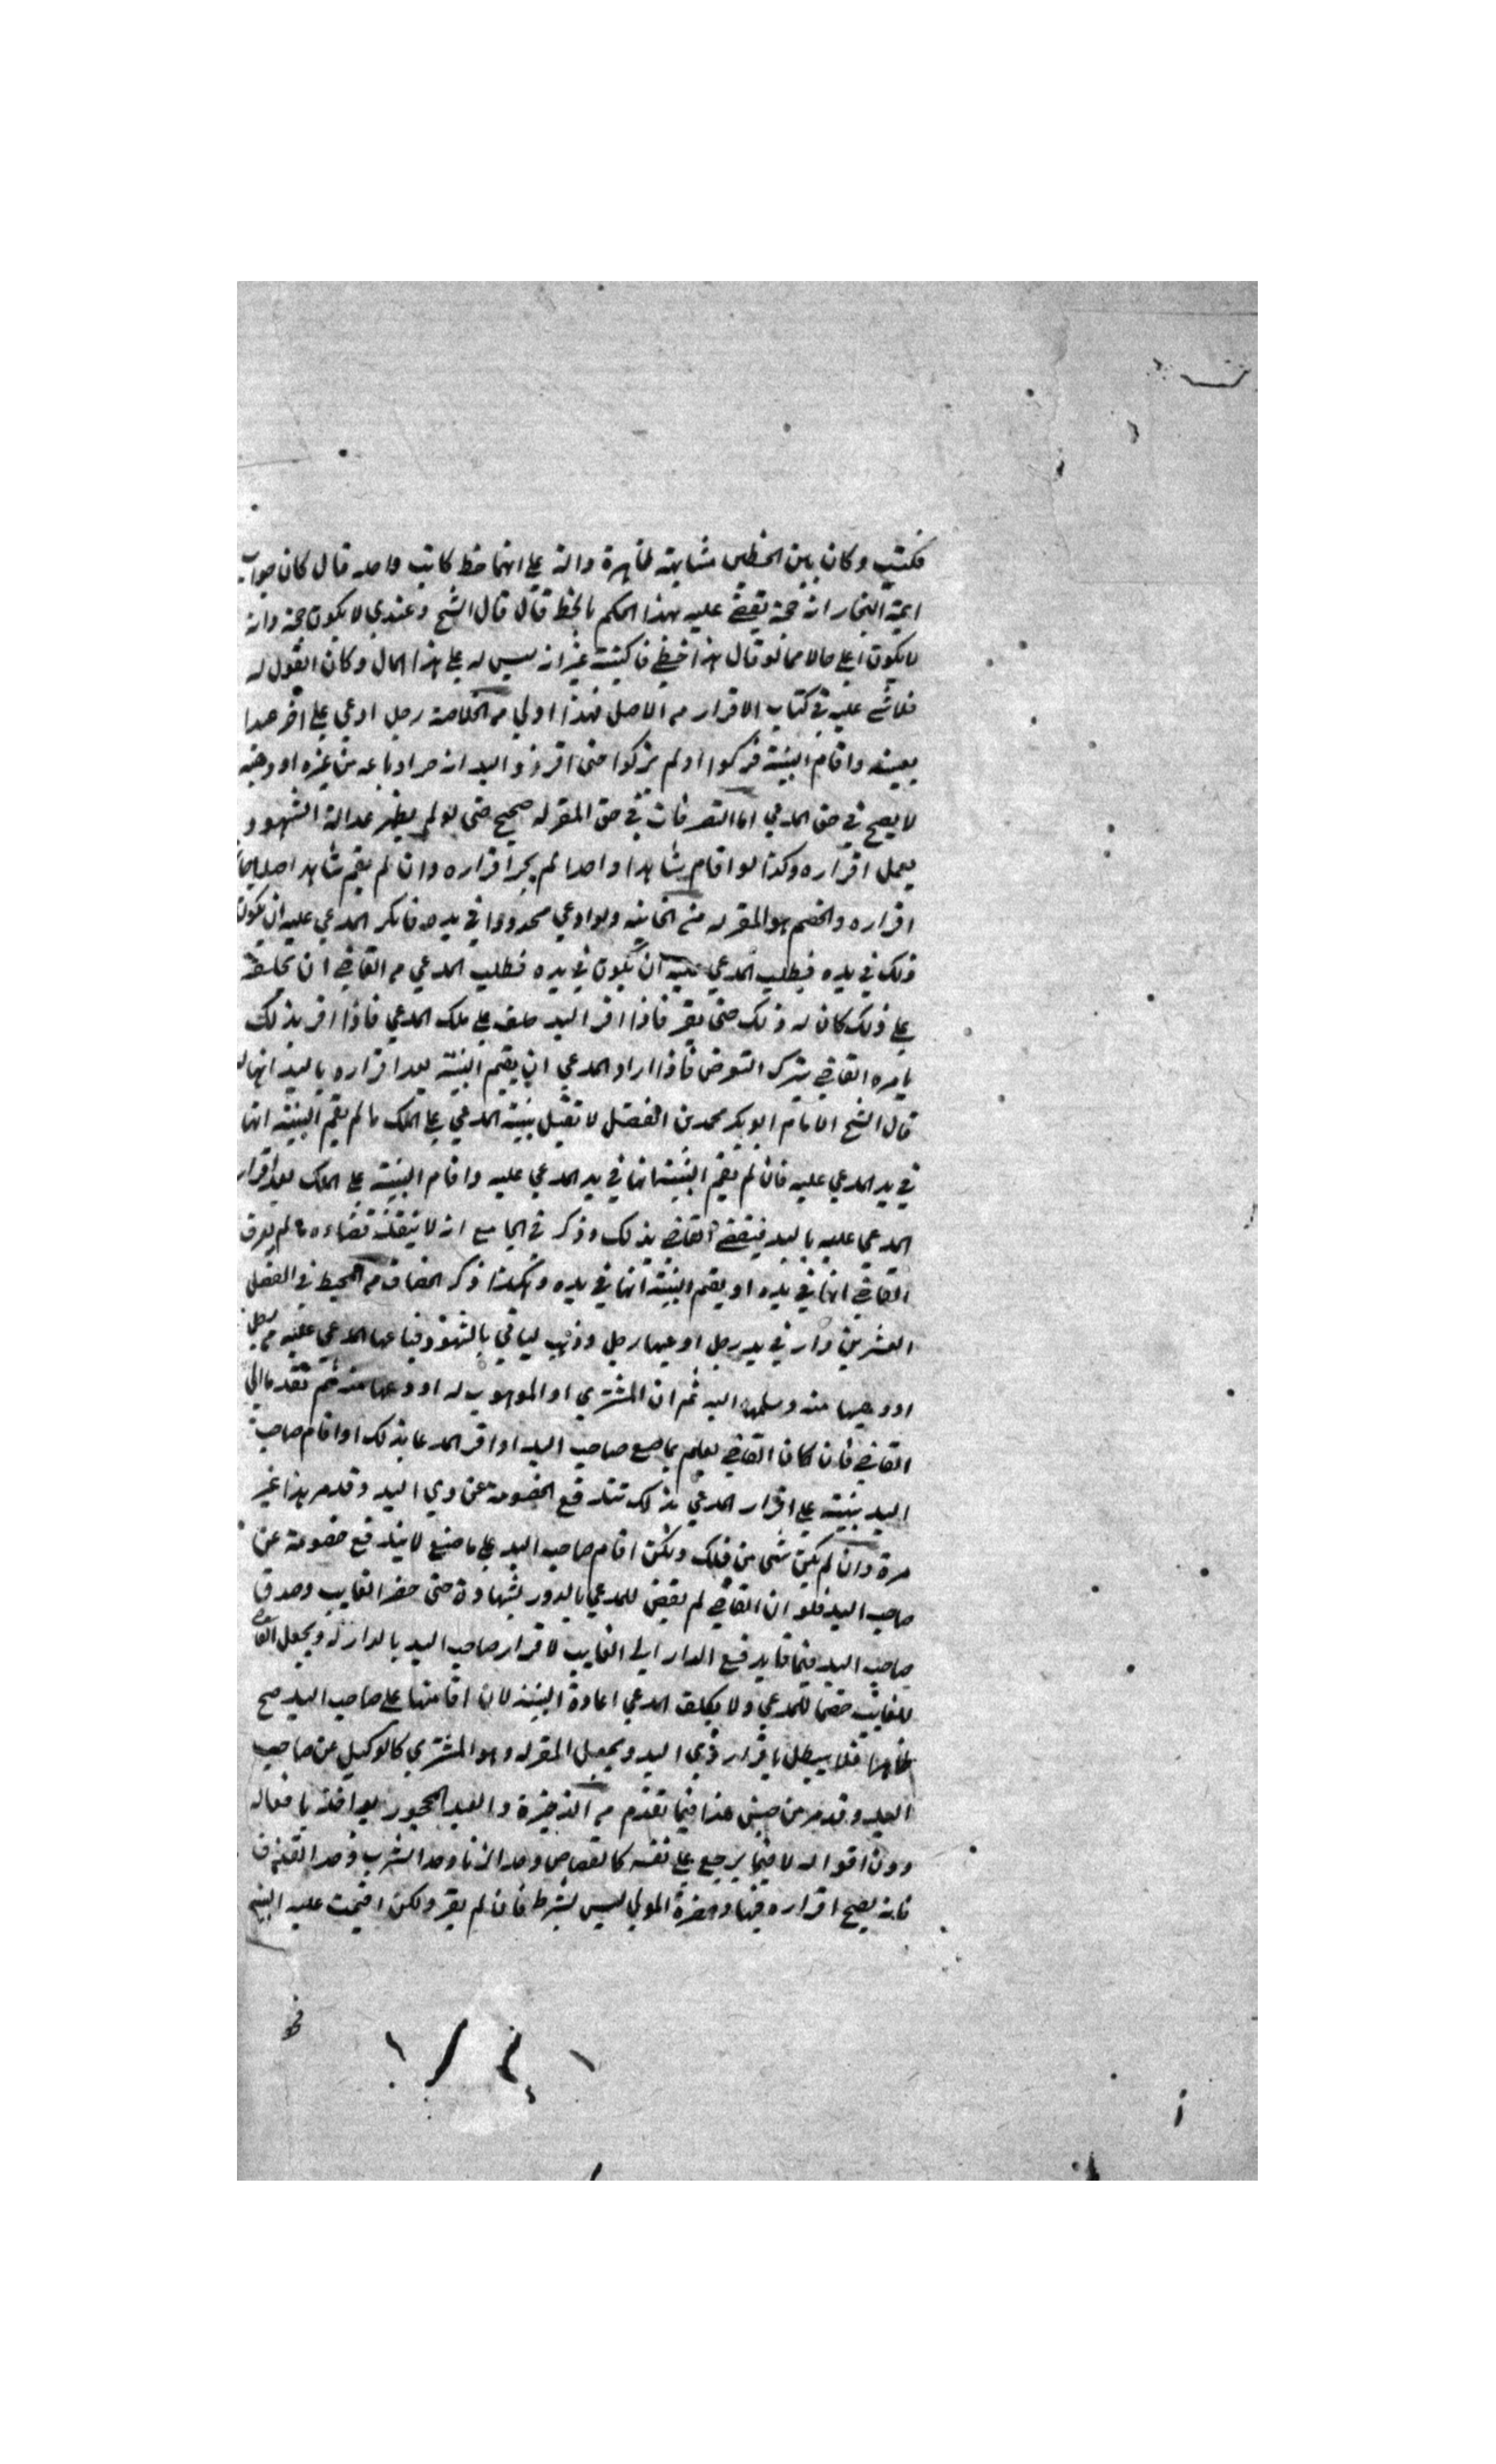 فكتب وكان بين الخطين مشابهة ظاهرة دالة على انهما خط كاتب واحد قال كان جواب
ائمة البخار انه حجة يقضى عليه بهذا الحكم بالخط قال قال الشيخ وعندي لا يكون حجة وانه
لا يكون اعلى حالا مما لو قال هذا خطي فاكتبته غير انه ليس له على هذا المال وكان القول له
فلا شي عليه في كتاب الاقرار من الاصل فهذا اولى من الخلاصة رجل ادعى على اخر عبدا
بعينه واقام البينة فزكوا او لم يزكوا حتى اقر ذو اليد انه حر او باعه من غيره او وهبه
لا يصح في حق المدعي اما التصرفات في حق المقر له صحيح حتى لو لم يظهر عدالة الشهود
يعمل اقراره وكذا لو اقام شاهدا واحدا لم يجز اقراره وان لم يقم شاهد اصلا
اقراره والخصم هو المقر له من الخانيه ولو ادعى محدودا في يده فانكر المدعى عليه ان يكون
ذلك في يده فيطلب المدعي عليه ان يكون في يده فطلب المدعي من القاضي ان يحلفه
على ذلك كان له ذلك حتى يقر فاذا اقر اليد حلف على ملك المدعي فاذا اقر بذلك
يامره القاضي بترك التعرض فاذا اراد المدعي ان يقيم البينة بعد اقراره باليد انها له
قال الشيخ الامام ابو بكر محمد بن الفضل لا تقبل بينة المدعي على الملك ما لم يقم البينة انها
في يد المدعي عليه فان لم يقم البينة انها في يد المدعي عليه واقام البينة على الملك بعد اقرار
المدعي عليه باليد فيقضى القاضي بذلك وذكر في الجامع انه لا ينفذ قضاءه ما لم يعرف
القاضي انها في يده او يقم البينة انها في يده وهكذا ذكر الخصاف من المحيط في الفصل
العشرين دار في يد رجل ادعيها رجل وذهب لياتي بالشهود فباعها المدعى عليه من رجل
او وهبها منه وسلمها اليه ثم ان المشتري او الموهوب له اودعها منه ثم تقدما الي
القاضي فان كان القاضي يعلم بما صنع صاحب اليد او اقر المدعي بذلك او اقام صاحب
اليد بينة على اقرار المدعي بذلك تندفع الخصومة عن ذي اليد وقد مر هذا غير
مرة وان لم يكن شي من ذلك ولكن اقام صاحب اليد على ما صنع لا يندفع خصومة عن
صاحب اليد فلو ان القاضي لم يقض للمدعي بالدور بشهادة حتى حضر الغايب وصدق
صاحب اليد فيما قا يدفع الدار الى الغايب لاقرار صاحب اليد بالدار له ويجعل القاضي
للغايب خصما للمدعي ولا يكلف المدعي اعادة البينة لان اقامتها على صاحب اليد صح
ظاهرا فلا يبطل باقرار ذي اليد ويجعل المقر له وهو المشتري كالوكيل عن صاحب
اليد وقد مر من جنس هذا فيما تقدم من الذخيرة والعبد المحجور يواخذ بافعاله
دون اقواله لا فيما يرجع على نفسه كالقصاص وحد الزنا وحد الشرب وحد القذف
فانه يصح اقراره فيها وحضرة المولي ليس بشرط فان لم يقر ولكن اقيمت عليه البينة